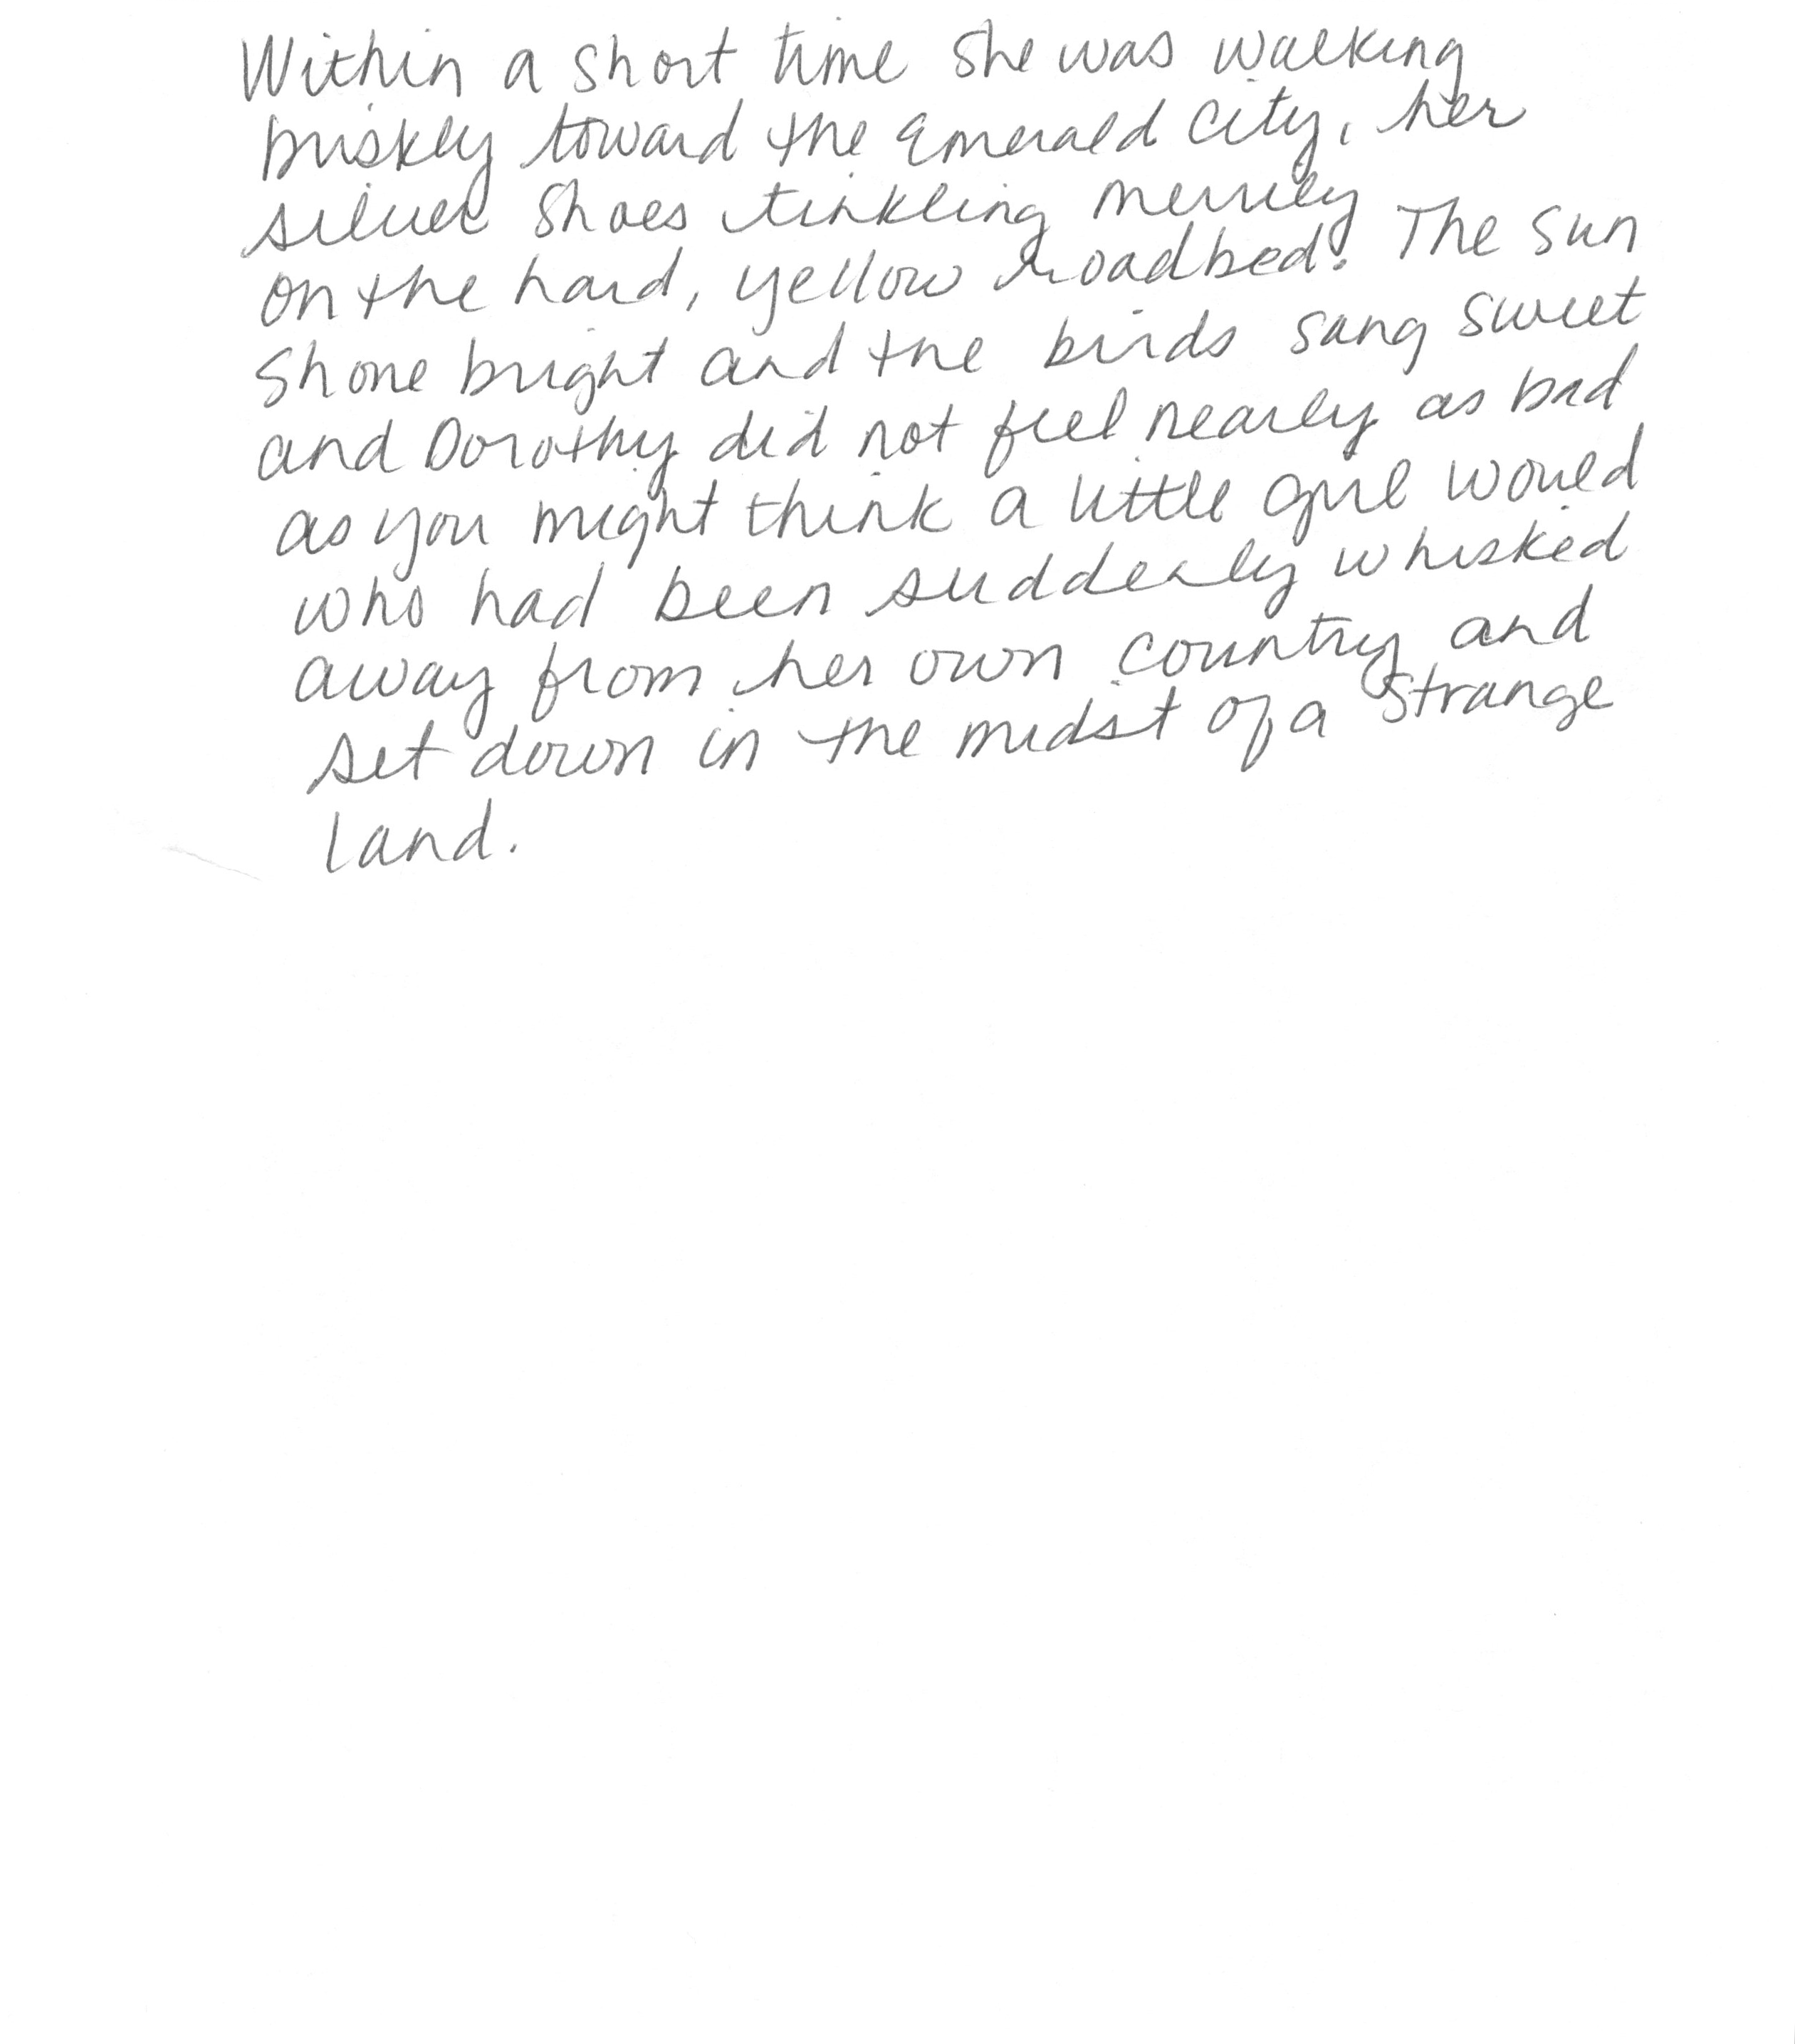 Within a short time she was walking
briskly toward the Emerald City, her
silver shoes tinkling merrily
on the hard, yellow roadbed. The sun
shone bright and the birds sang sweet
and Dorothy did not feel nearly as bad
as you might think a little girl would
who had been suddenly whisked
away from her own country and
set down in the midst of a strange
land.